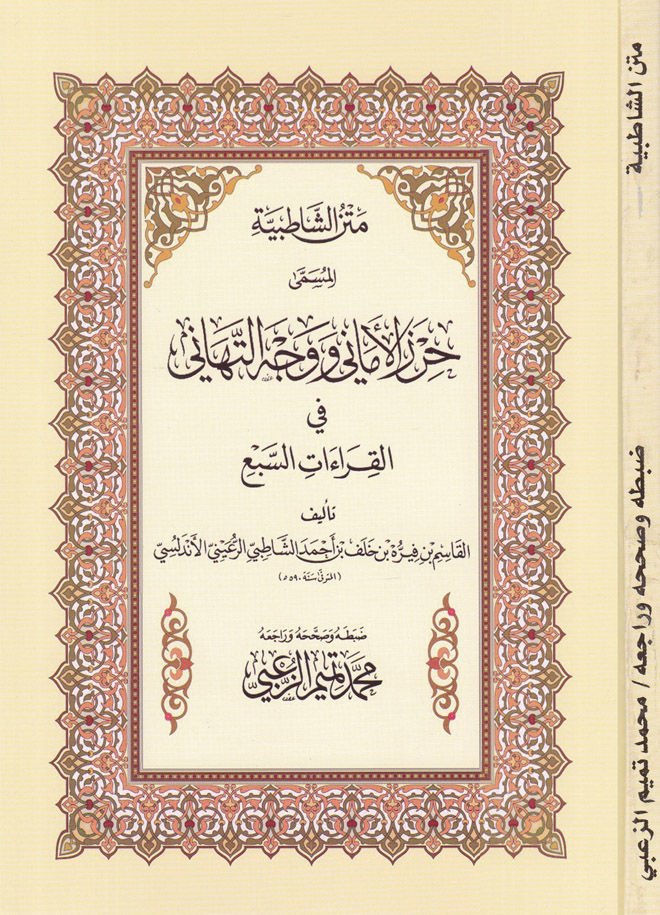 مَتْنُ الشَّاطِبِيَّة
المُسَمَّى
حِرْزُ الأَمَانِي وَوَجْهُ التَّهَانِي
فِي
القِرَاءَاتِ السَّبْعِ
تأليف
القَاسِمِ بْنِ فِيرُّهْ بْنِ خَلَفِ بْنِ أَحْمَدَ الشَّاطِبِيِّ الرُّعَيْنِيِّ الأَنْدَلُسِيِّ
(المتوفى سنة ٥٩٠ هـ)
ضَبَطَهُ وَصَحَّحَهُ وَرَاجَعَهُ
محمَّد تميم الزُّعْبِي
متن الشاطبية
ضبطه وصححه وراجعه / محمد تميم الزعبي